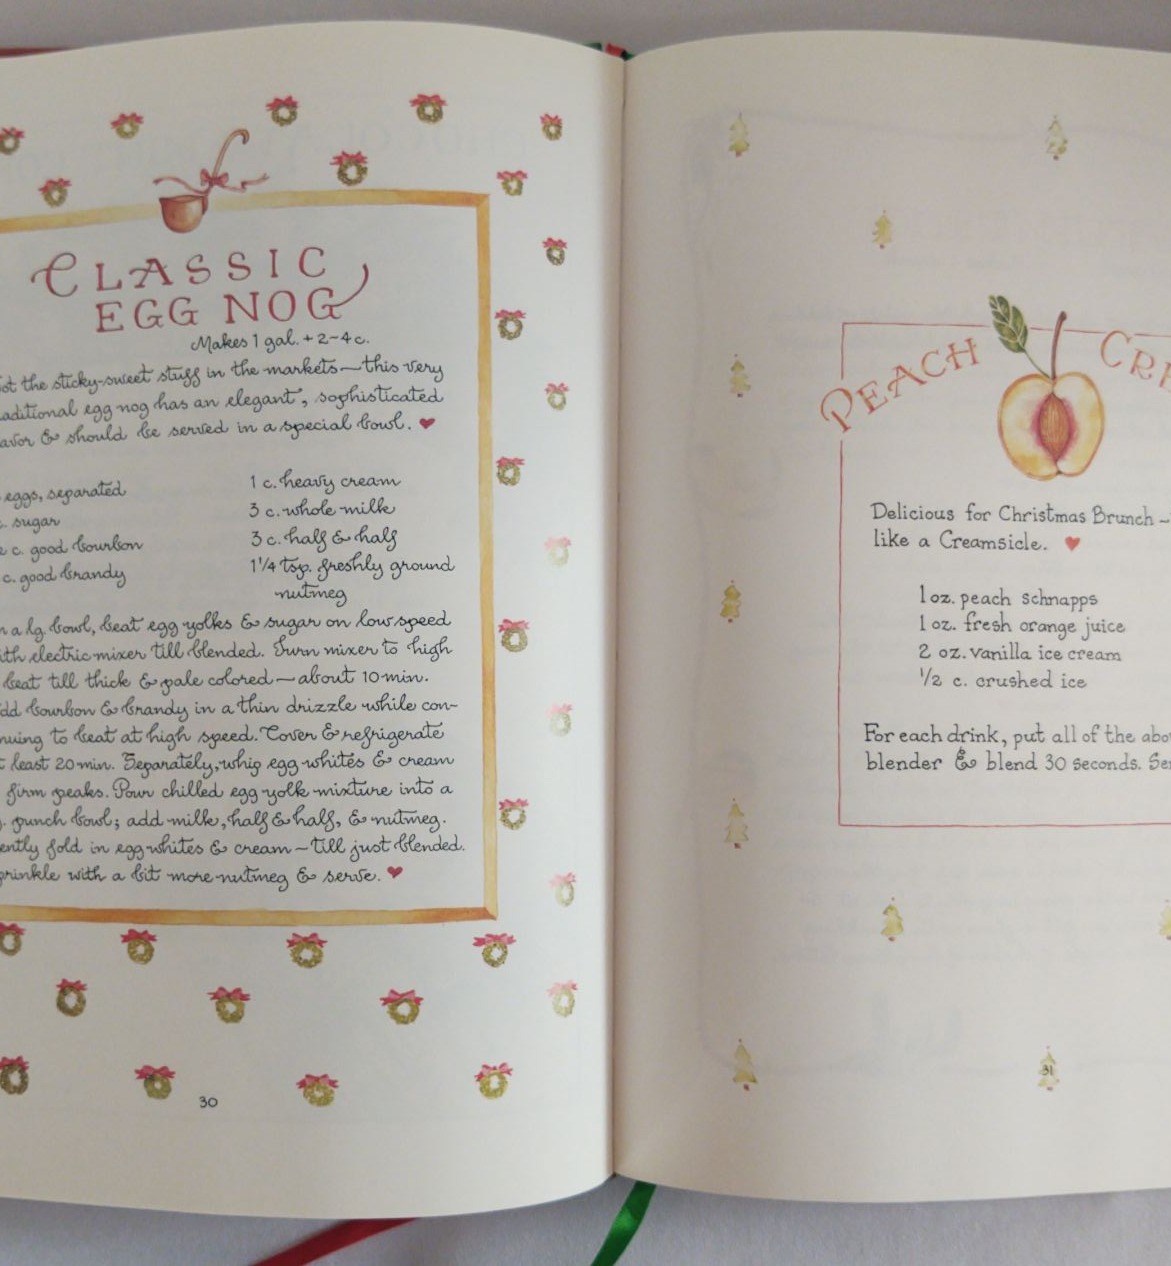 CLASSIC
EGG NOG
Makes 1 gal. + 2-4 c.
ot the sticky-sweet stuff in the markets—this very
aditional egg nog has an elegant, sophisticated
avor & should be served in a special bowl. ♥
eggs, separated
c. sugar
c. good bourbon
c. good brandy
1 c. heavy cream
3 c. whole milk
3 c. half & half
1 1/4 tsp. freshly ground
nutmeg
n a lg. bowl, beat egg yolks & sugar on low speed
ith electric mixer till blended. Turn mixer to high
beat till thick & pale colored—about 10 min.
dd bourbon & brandy in a thin drizzle while con-
nuing to beat at high speed. Cover & refrigerate
t least 20 min. Separately, whip egg whites & cream
firm peaks. Pour chilled egg yolk mixture into a
g. punch bowl; add milk, half & half, & nutmeg.
ently fold in egg whites & cream—till just blended.
prinkle with a bit more nutmeg & serve. ♥
30
PEACH CRE
Delicious for Christmas Brunch—
like a Creamsicle. ♥
1 oz. peach schnapps
1 oz. fresh orange juice
2 oz. vanilla ice cream
1/2 c. crushed ice
For each drink, put all of the abo
blender & blend 30 seconds. Se
31